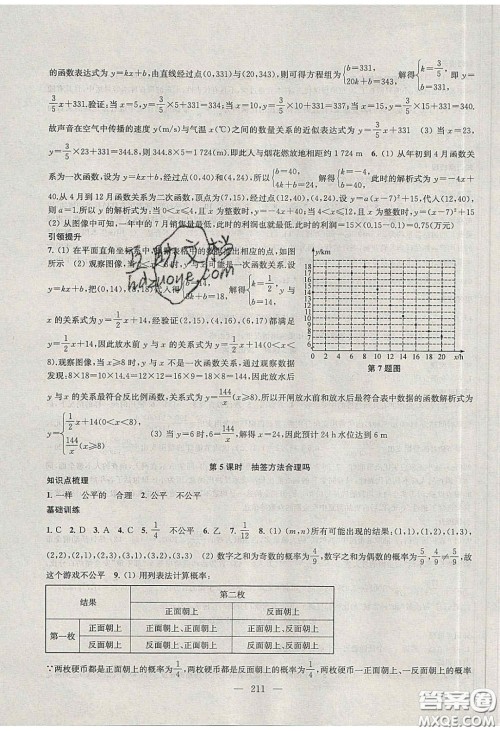 的函数表达式为 y=kx+b,由直线经过点(0,331)与(20,343),则可得方程组为{b=331, 20k+b=343, 解得{k=3/5, b=331, 即 y=
3/5x+331.验证:当 x=5,y=3/5×5+331=334;当 x=10,y=3/5×10+331=337;当 x=15,y=3/5×15+331=340.
故声音在空气中传播的速度 y(m/s)与气温 x(℃)之间的数量关系的近似表达式为 y=3/5x+331 (3) 当 x=23,
y=3/5x+331=344.8,则 344.8×5=1 724 m.即此人与烟花燃放地相距约 1 724 m 6. (1) 从年初到 4 月函数关系
为一次函数,设为 y=kx+b,经过点(0,40),(4,24).所以{b=40, 4k+b=24, 解得{k=-4, b=40, 此时的解析式为 y=-4x+
40.从 4 月到 12 月函数关系为二次函数,顶点为(7,15),经过点(12,40),(4,24).设 y=a(x-7)²+15,代入点(12,40),
则 a=1.所以 y 的解析式为:当 0<x≤4,且 x 为整数时,y=-4x+40;当 4<x≤12,且 x 为整数时,y=(x-7)²+15
(2) 从图像中可知,一年中的 7 月销售量最低,此时的利润就最低.此时的利润=15×(0.15-0.1)=0.75(万元)
引领提升
7. (1) 在平面直角坐标系中,
出相应的点,如图
所示 (2) 观察图像,
与 x 可能是一次函数关系,设
y=kx+b,把(0,14),(8,18)代入得{b=14, 8k+b=18, 解得{k=1/2, b=14, y 与
x 的关系式为 y=1/2x+14,经验证(2,15),(4,16),(6,17)都满足
y=1/2x+14,因此放水前 y 与 x 的关系式为 y=1/2x+14(0<x<8).
观察图像,当 x≥8 时,y 与 x 不是一次函数关系.通过观察数据
发现:8×18=10×14.4=12×12=14×10.3=16×9=18×8=144.因此放水后
y 与 x 的关系最符合反比例函数,关系式为 y=144/x(x≥8),所以开闸放水前和放水后最符合表中数据的函数解析式为
y={1/2x+14(0<x<8) 144/x(x≥8) (3) 当 y=6 时,6=144/x,解得 x=24,因此预计 24 h 水位达到 6 m
y/km
0 2 4 6 8 10 12 14 16 18 20 x/h
第 7 题图
第 5 课时 抽签方法合理吗
知识点梳理
1. 一样 公平的 合理 2. 公平 不公平
基础训练
1. C 2. D 3. A 4. C 5. 1/4 不公平 6. 1/2 7. 1/12 8. (1) (m,n)所有可能出现的结果:(1,1),(1,2),(1,3)
(2,2),(2,1),(2,3),(3,1),(3,2),(3,3) (2) 数字之和为奇数的概率为4/9,数字之和为偶数的概率为5/9,4/9≠5/9,故
这个游戏不公平 9. (1) 用列表法计算概率:
结果 第二枚
正面朝上 反面朝上
第一枚 正面朝上 正面朝上、正面朝上 正面朝上、反面朝上
反面朝上 反面朝上、正面朝上 反面朝上、反面朝上
∵两枚硬币都是正面朝上的概率为1/4,两枚硬币都是反面朝上的概率为1/4,两枚硬币一正面朝上、一反面朝上的概率
— 211 —
hdzuoye.com
答案圈
MXQE.COM